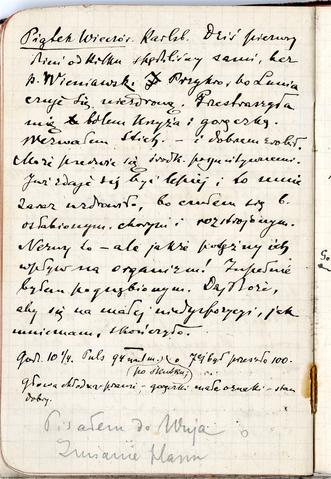 Piątek Wieczór. Karlsb. Dziś pierwszy
dzień od kilku spędziliśmy sami, bez
p. Wieniawsk. Przykro, bo Lunia
czuje się niezdrową. Przestraszyła
mię bólem krzyża i gorączką.
Wezwałem Stich. – i dobrem zrobił.
Już zdaje się być lepiej, i to mnie
zaraz uzdrowiło, bo czułem się b.
osłabionym, chorym i rozstrojonym.
Nerwy to – ale jakże potężny ich
wpływ na organizm! Zupełnie
byłem pognębionym. Daj Boże,
aby się na małej niedyspozycji, jak
mniemam, skończyło.
God. 10¼. Puls 94 Jej był przeszło 100.
Głowa chłodna prawie, – gorączki małe oznaki – stan
dobry.
Pisałem do Wuja